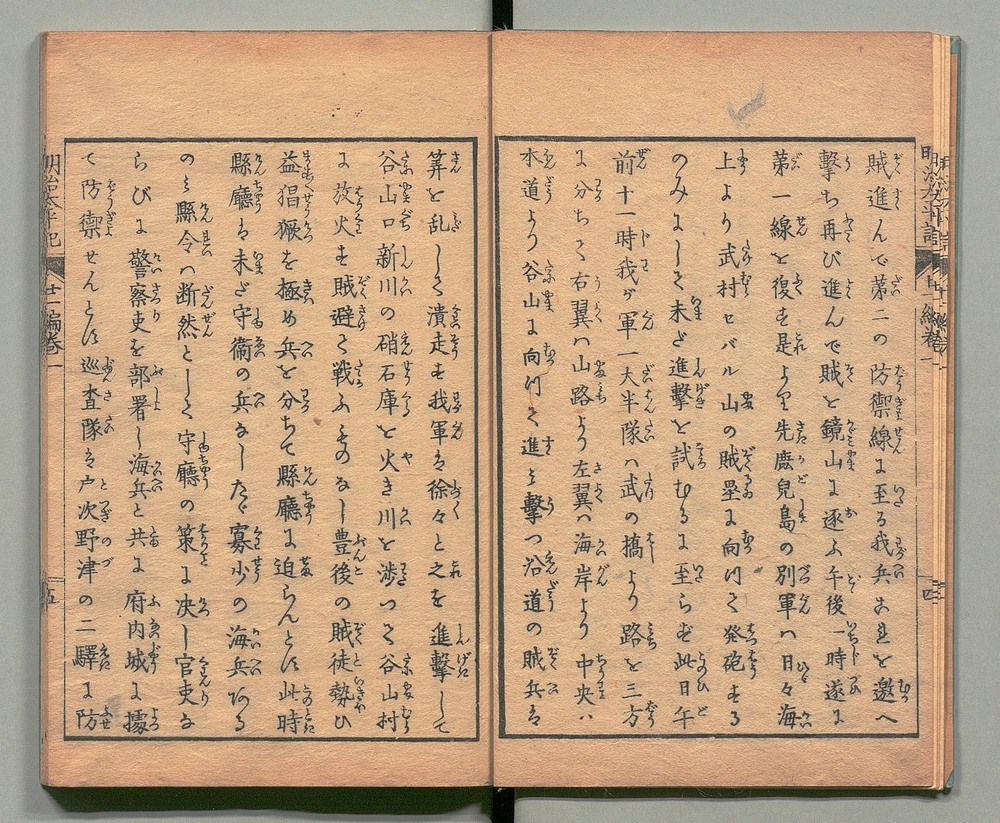 賊進んで第二の防禦線に至る我兵これを邀へ
撃ち再び進んで賊を鏡山に逐ふ午後一時遂に
第一線を復す是より先鹿児島の別軍ハ日々海
上より武村セバル山の賊塁に向けて発砲する
のみにして未だ進撃を試むるに至らず此日午
前十一時我が軍一大半隊ハ武の橋より路を三方
に分ちて右翼ハ山路より左翼ハ海岸より中央ハ
本道より谷山に向けて進み撃つ沿道の賊兵を
算を乱して潰走す我軍を徐々と之を進撃して
谷山口新川の硝石庫を火き川を渉つて谷山村
に放火す賊避て戦ふものなし豊後の賊徒勢ひ
益猖獗を極め兵を分ちて縣廳に迫らんとす此時
縣廳る未だ守衛の兵なしたゞ寡少の海兵ある
のミ縣令ハ断然として守廳の策に决し官吏な
らびに警察吏を部署し海兵と共に府内城に據
て防禦せんとす巡査隊を戸次野津の二驛に防
明治太平記
廿一編巻一
四
明治太平記
廿一編巻一
五